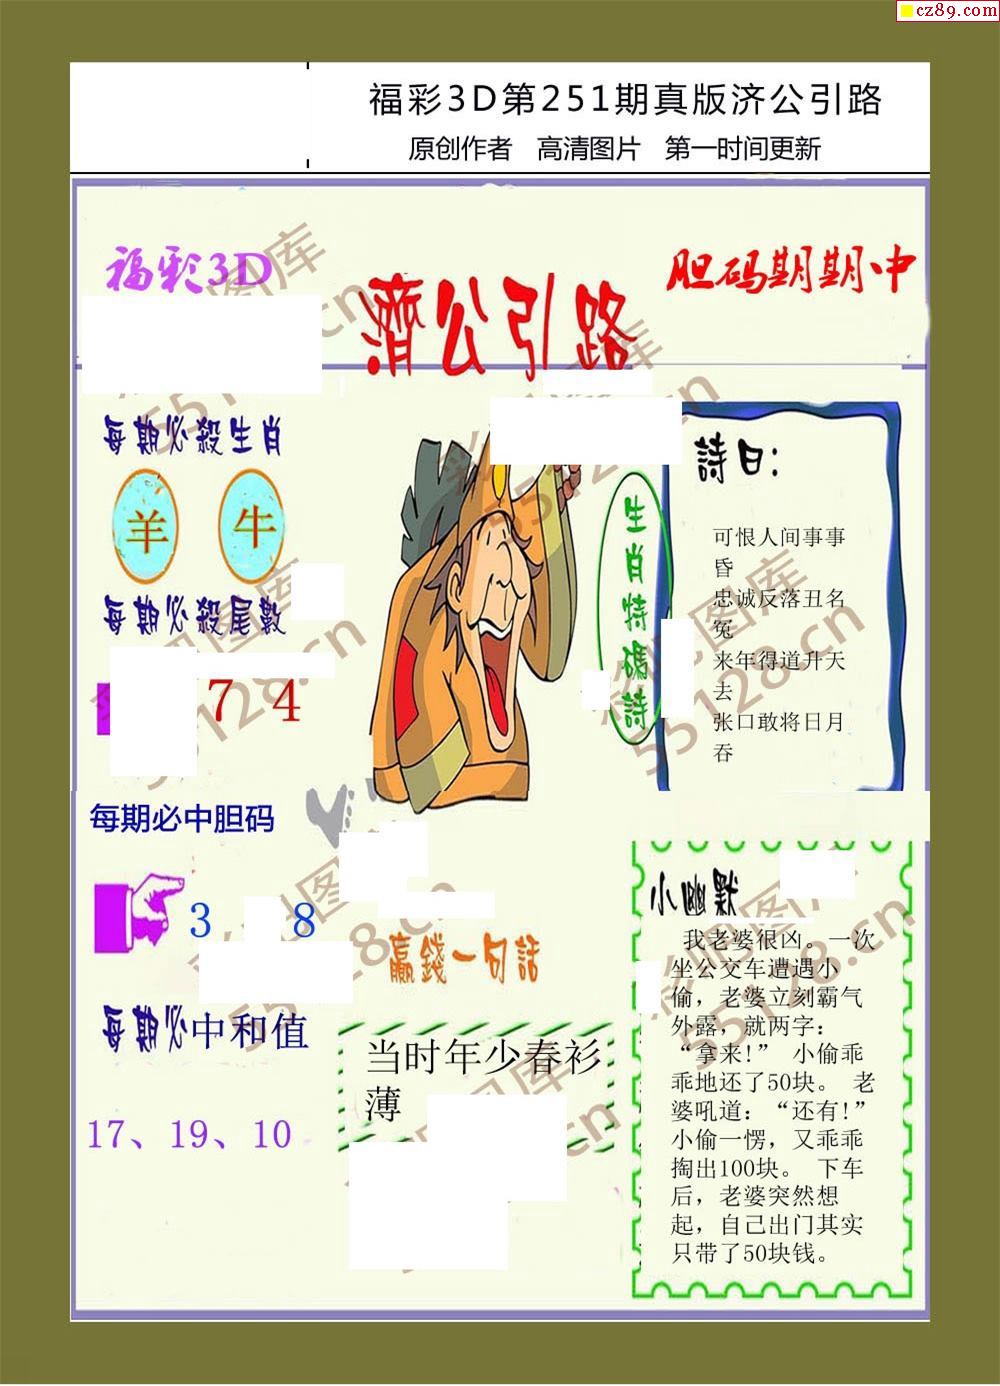 cz89.com
福彩3D第251期真版济公引路
原创作者 高清图片 第一时间更新
福彩3D
濟公引路
胆码期期中
每期必殺生肖
羊 牛
每期必殺尾數
7 4
每期必中胆码
3 8
每期必中和值
17、19、10
生肖特碼詩
詩曰:
可恨人间事事
昏
忠诚反落丑名
冤
来年得道升天
去
张口敢将日月
吞
赢錢一句話
当时年少春衫
薄
小幽默
我老婆很凶。一次
坐公交车遭遇小
偷，老婆立刻霸气
外露，就两字：
“拿来!” 小偷乖
乖地还了50块。 老
婆吼道：“还有!”
小偷一愣，又乖乖
掏出100块。 下车
后，老婆突然想
起，自己出门其实
只带了50块钱。
55128.cn